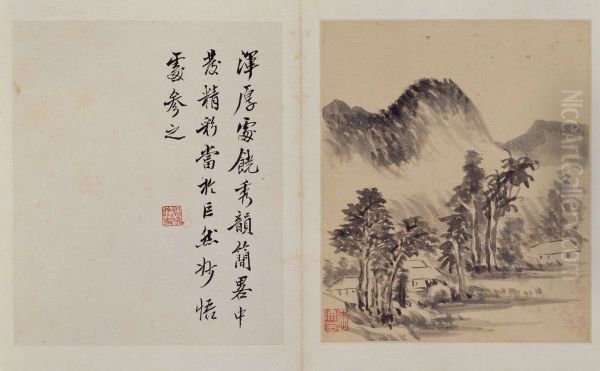 渾厚處饒秀韻簡畧中
發精彩當於巨然妙悟
處參之
NiceArtGallery.com